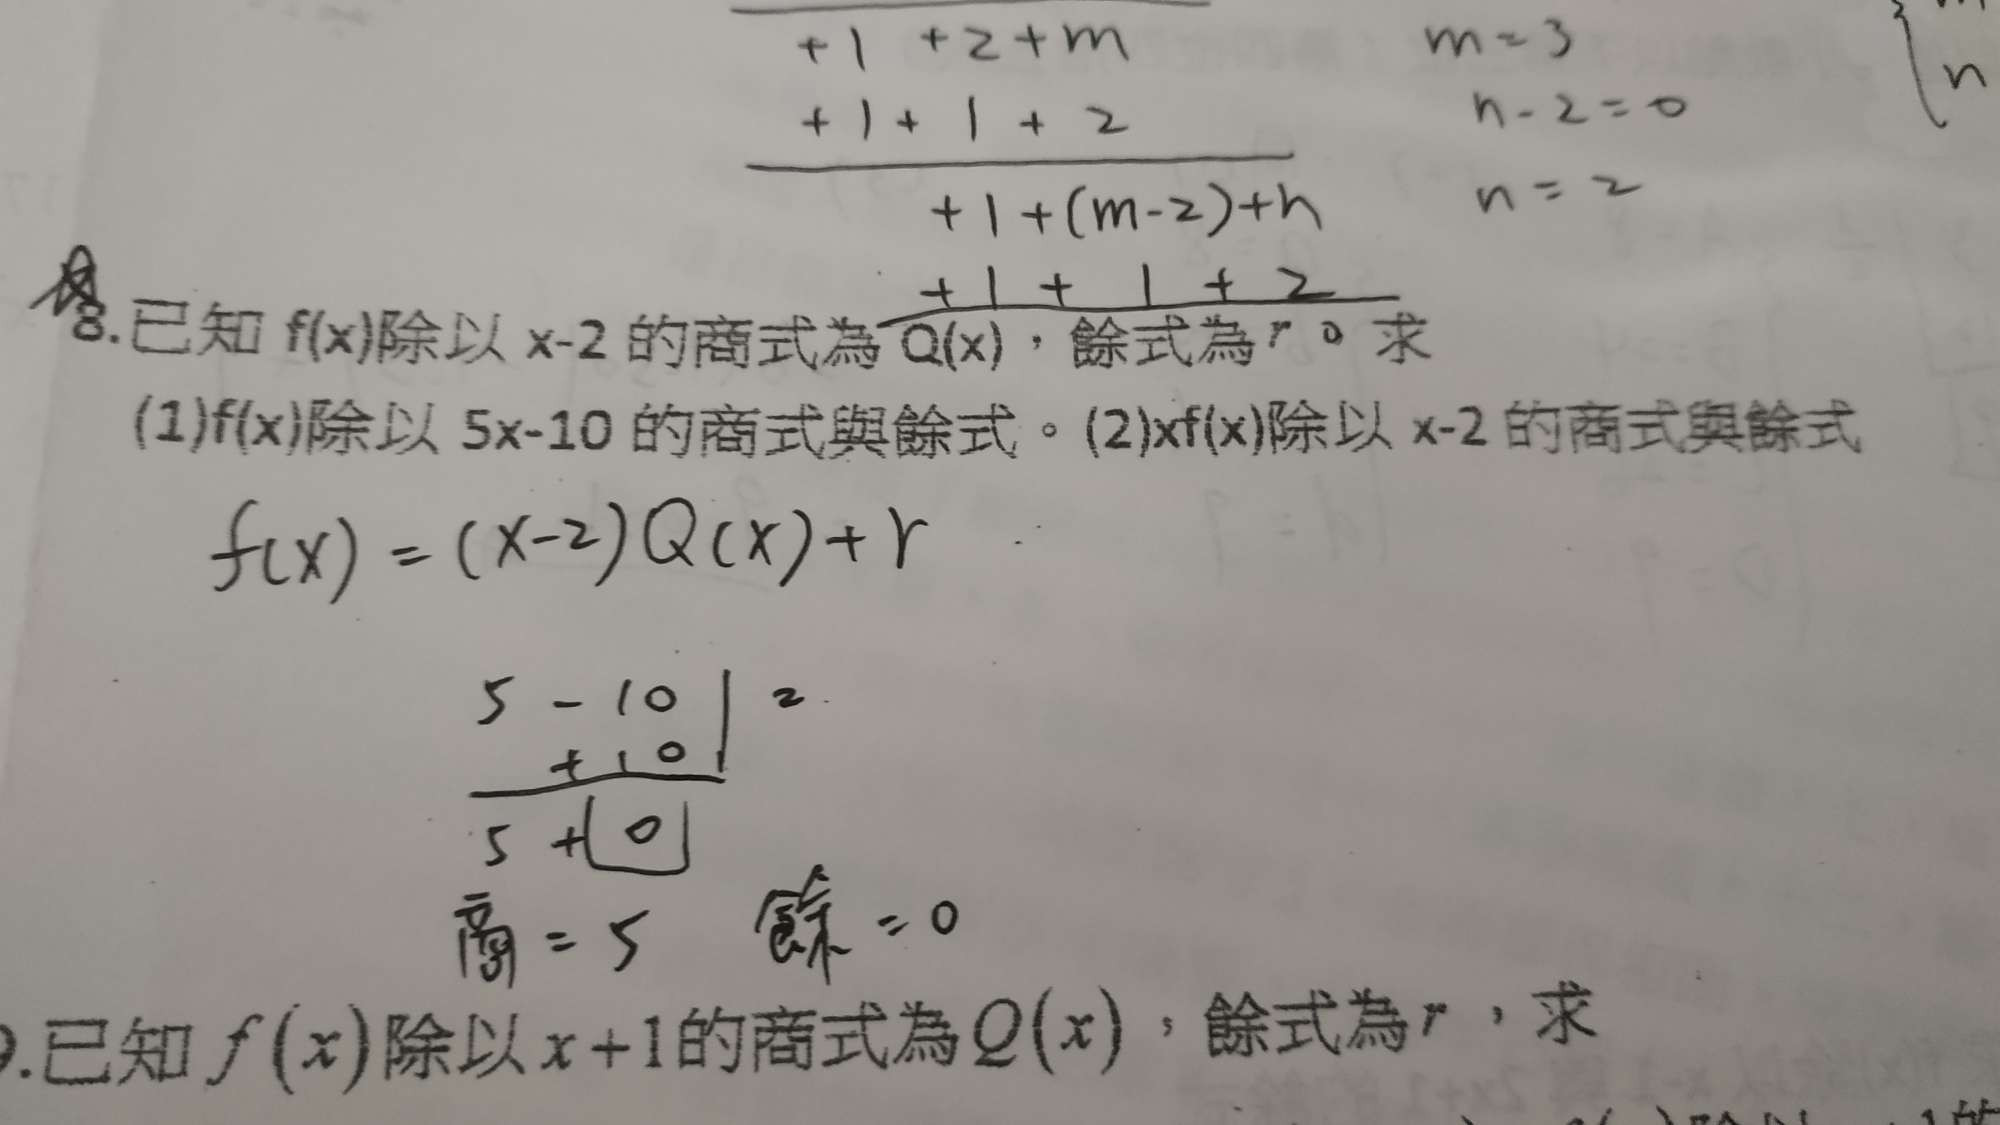 +1 +2+m
m=3
+1+1+2
n-2=0
n
+1+(m-2)+n
n=2
+1+1+2
8.已知 f(x)除以 x-2 的商式為 Q(x)，餘式為 r。求
(1)f(x)除以 5x-10 的商式與餘式。(2)xf(x)除以 x-2 的商式與餘式
f(x)=(x-2)Q(x)+r
5-10|2
+10
5+0
商=5 餘=0
.已知 f(x)除以 x+1的商式為Q(x)，餘式為r，求